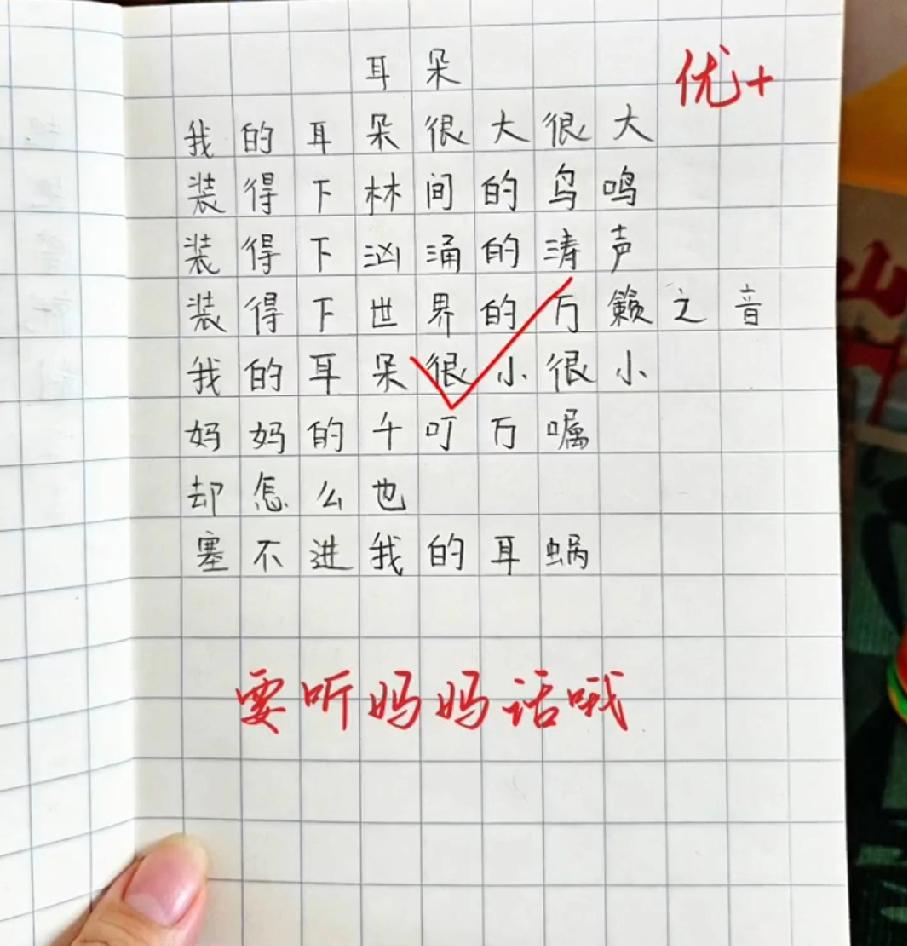 耳朵
优+
我的耳朵很大很大
装得下林间的鸟鸣
装得下汹涌的涛声
装得下世界的万籁之音
我的耳朵很小很小
妈妈的千叮万嘱
却怎么也
塞不进我的耳蜗
要听妈妈话哦